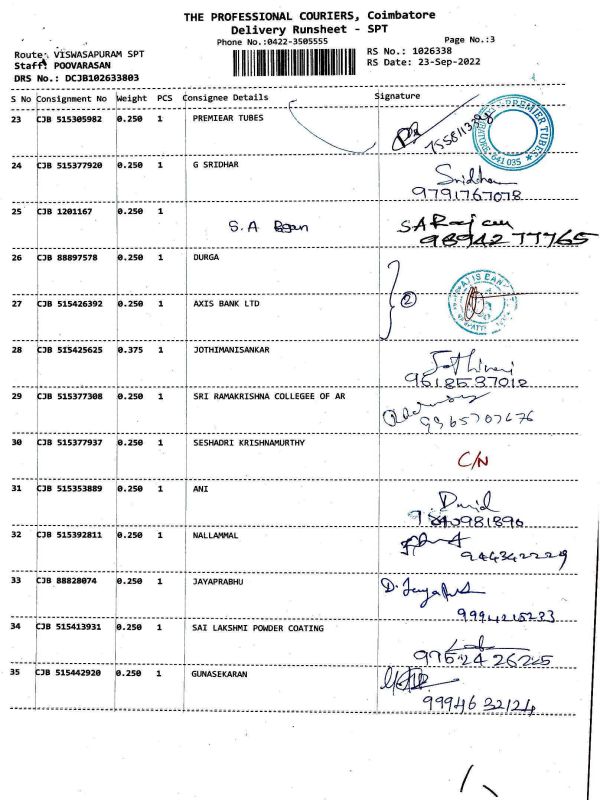 THE PROFESSIONAL COURIERS, Coimbatore
Delivery Runsheet - SPT
Phone No.:0422-3505555 Page No.:3
Route: VISWASAPURAM SPT RS No.: 1026338
Staff: POOVARASAN RS Date: 23-Sep-2022
DRS No.: DCJB102633803
S No Consignment No Weight PCS Consignee Details Signature
23 CJB 515305982 0.250 1 PREMIEAR TUBES
PREMIER TUBES 641 035
24 CJB 515377920 0.250 1 G SRIDHAR Sridhar
9791767078
25 CJB 1201167 0.250 1 S.A S.A Rajan
98942 77765
26 CJB 88897578 0.250 1 DURGA
2
27 CJB 515426392 0.250 1 AXIS BANK LTD
28 CJB 515425625 0.375 1 JOTHIMANISANKAR Jothimani
9618537012
29 CJB 515377308 0.250 1 SRI RAMAKRISHNA COLLEGEE OF AR
9365707676
30 CJB 515377937 0.250 1 SESHADRI KRISHNAMURTHY
C/N
31 CJB 515353889 0.250 1 ANI David
32 CJB 515392811 0.250 1 NALLAMMAL
33 CJB 88828074 0.250 1 JAYAPRABHU D. Jayaprabhu
9994215233
34 CJB 515413931 0.250 1 SAI LAKSHMI POWDER COATING
97624 26225
35 CJB 515442920 0.250 1 GUNASEKARAN
99946 32124